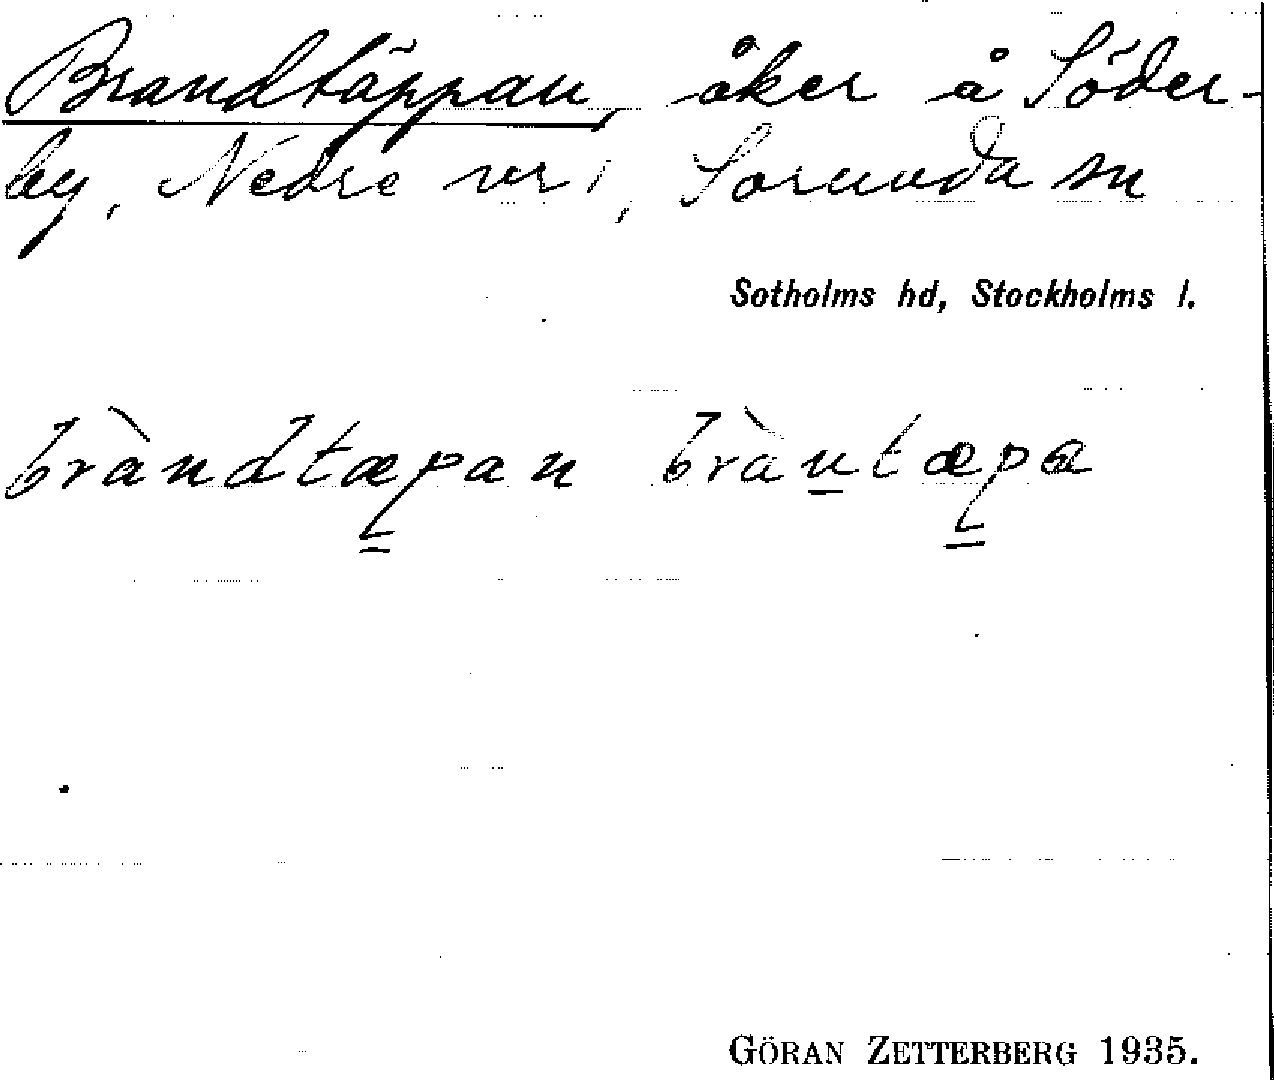 Brandtäppan, åker å Söder-
by, Nedre
Sorunda sn
Sotholms hd, Stockholms l.
bràndtæpan bràntæpa
GÖRAN ZETTERBERG 1935.